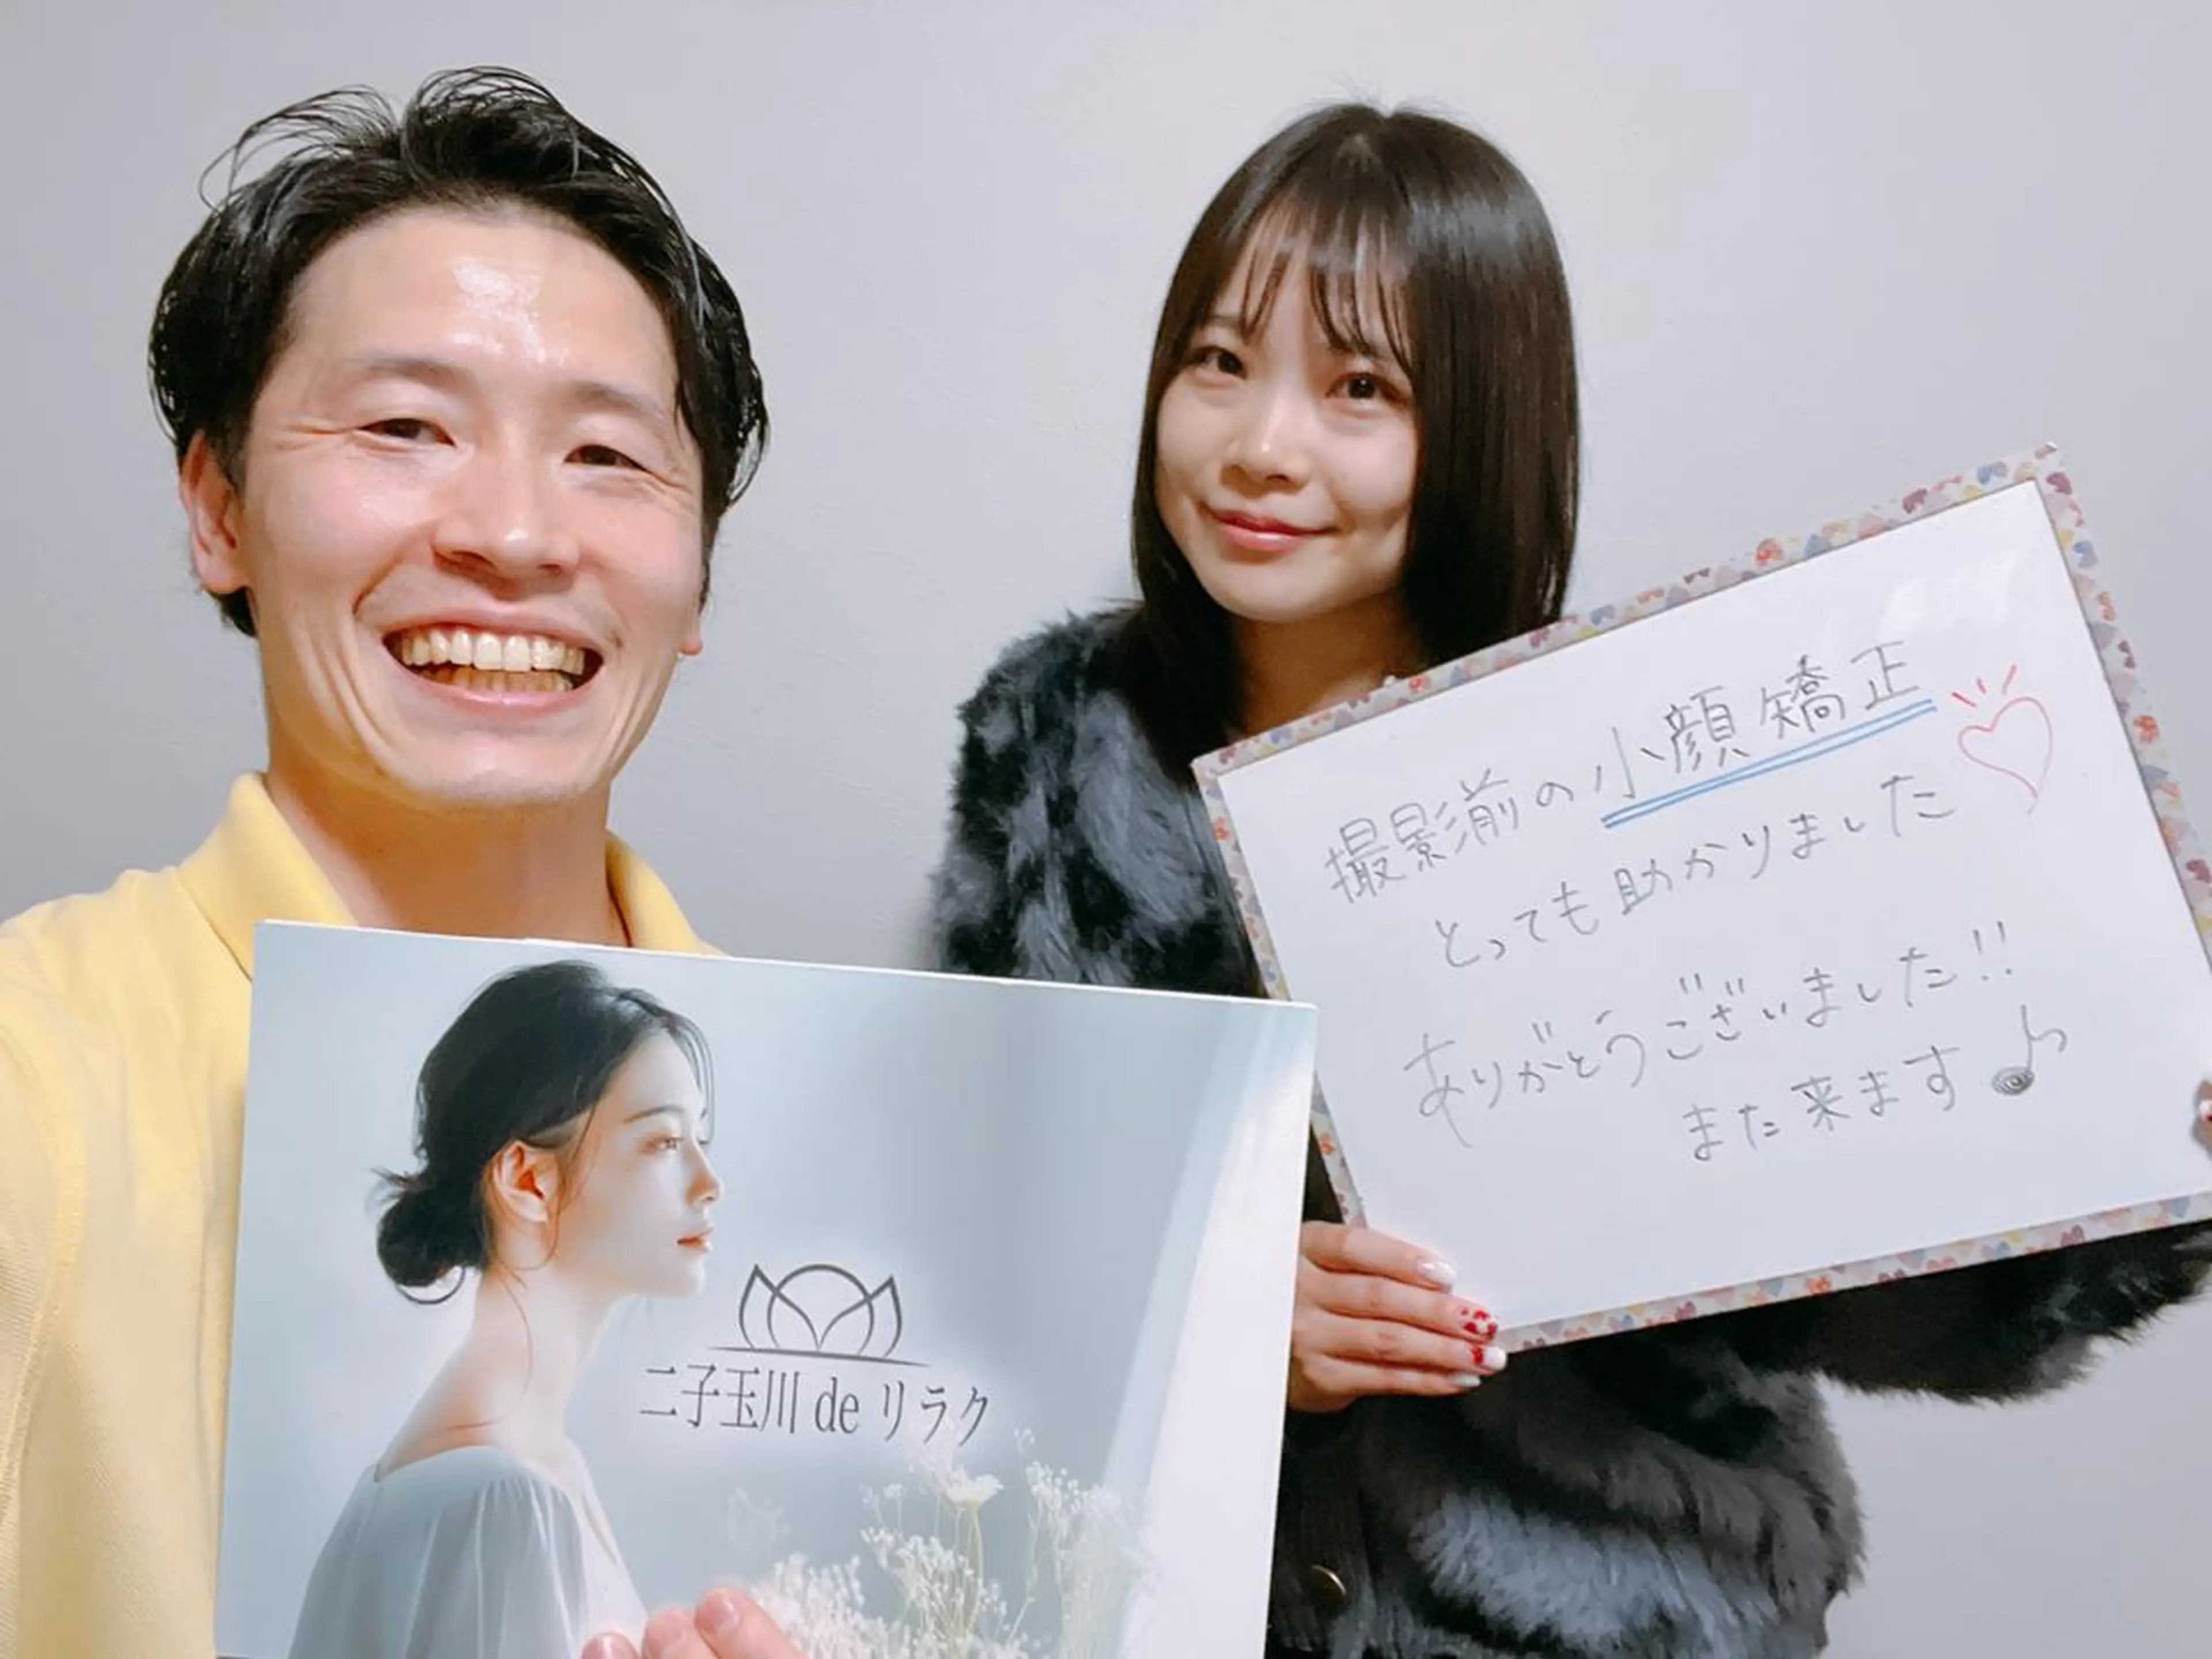 撮影前の小顔矯正
とっても助かりました
ありがとうございました!!
また来ます♪
二子玉川 de リラク